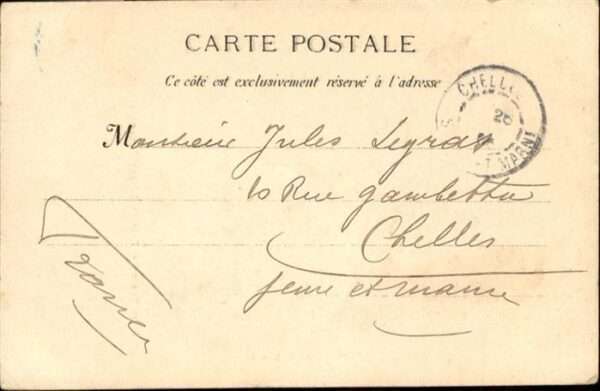 CARTE POSTALE
Ce côté est exclusivement réservé à l'adresse
CHELLES
20
ET MARNE
Monsieur Jules Legray
10 Rue Gambetta
Chelles
Seine et Marne